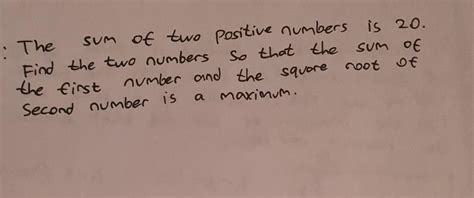 : The sum of two positive numbers is 20.
Find the two numbers so that the sum of
the first number and the square root of
Second number is a maximum.